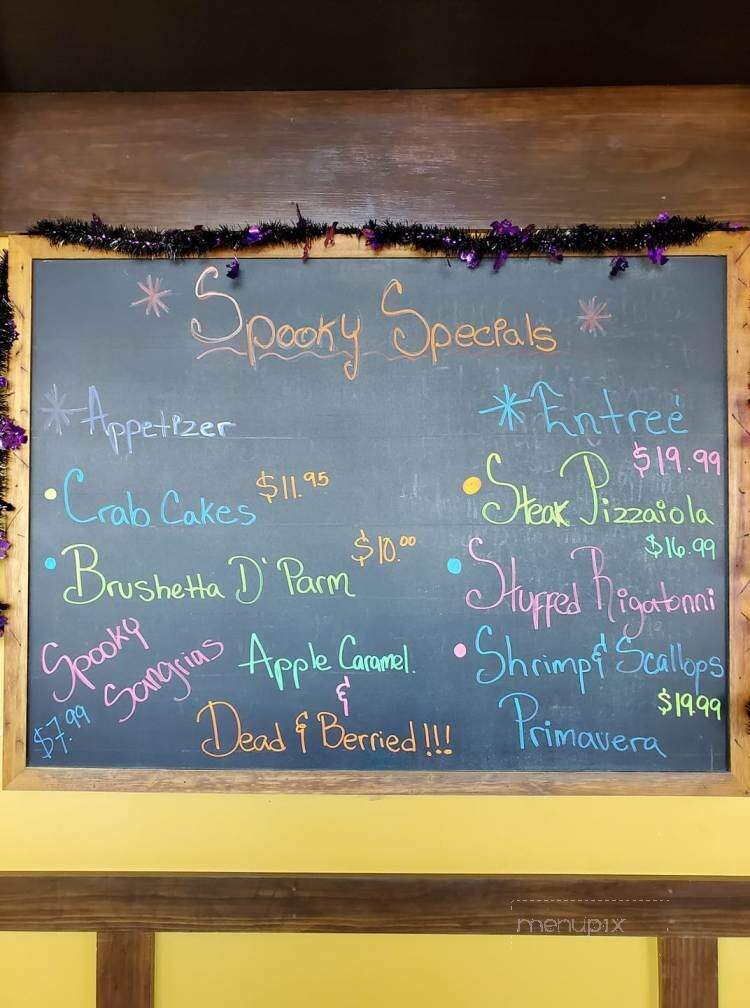 Spooky Specials
Appetizer
Crab Cakes $11.95
Brushetta D' Parm $10.00
Spooky Sangrias
$7.99
Apple Caramel.
&
Dead & Berried!!!
Entreé
$19.99
Steak Pizzaiola
$16.99
Stuffed Rigatonni
Shrimp & Scallops
$19.99
Primavera
menupix